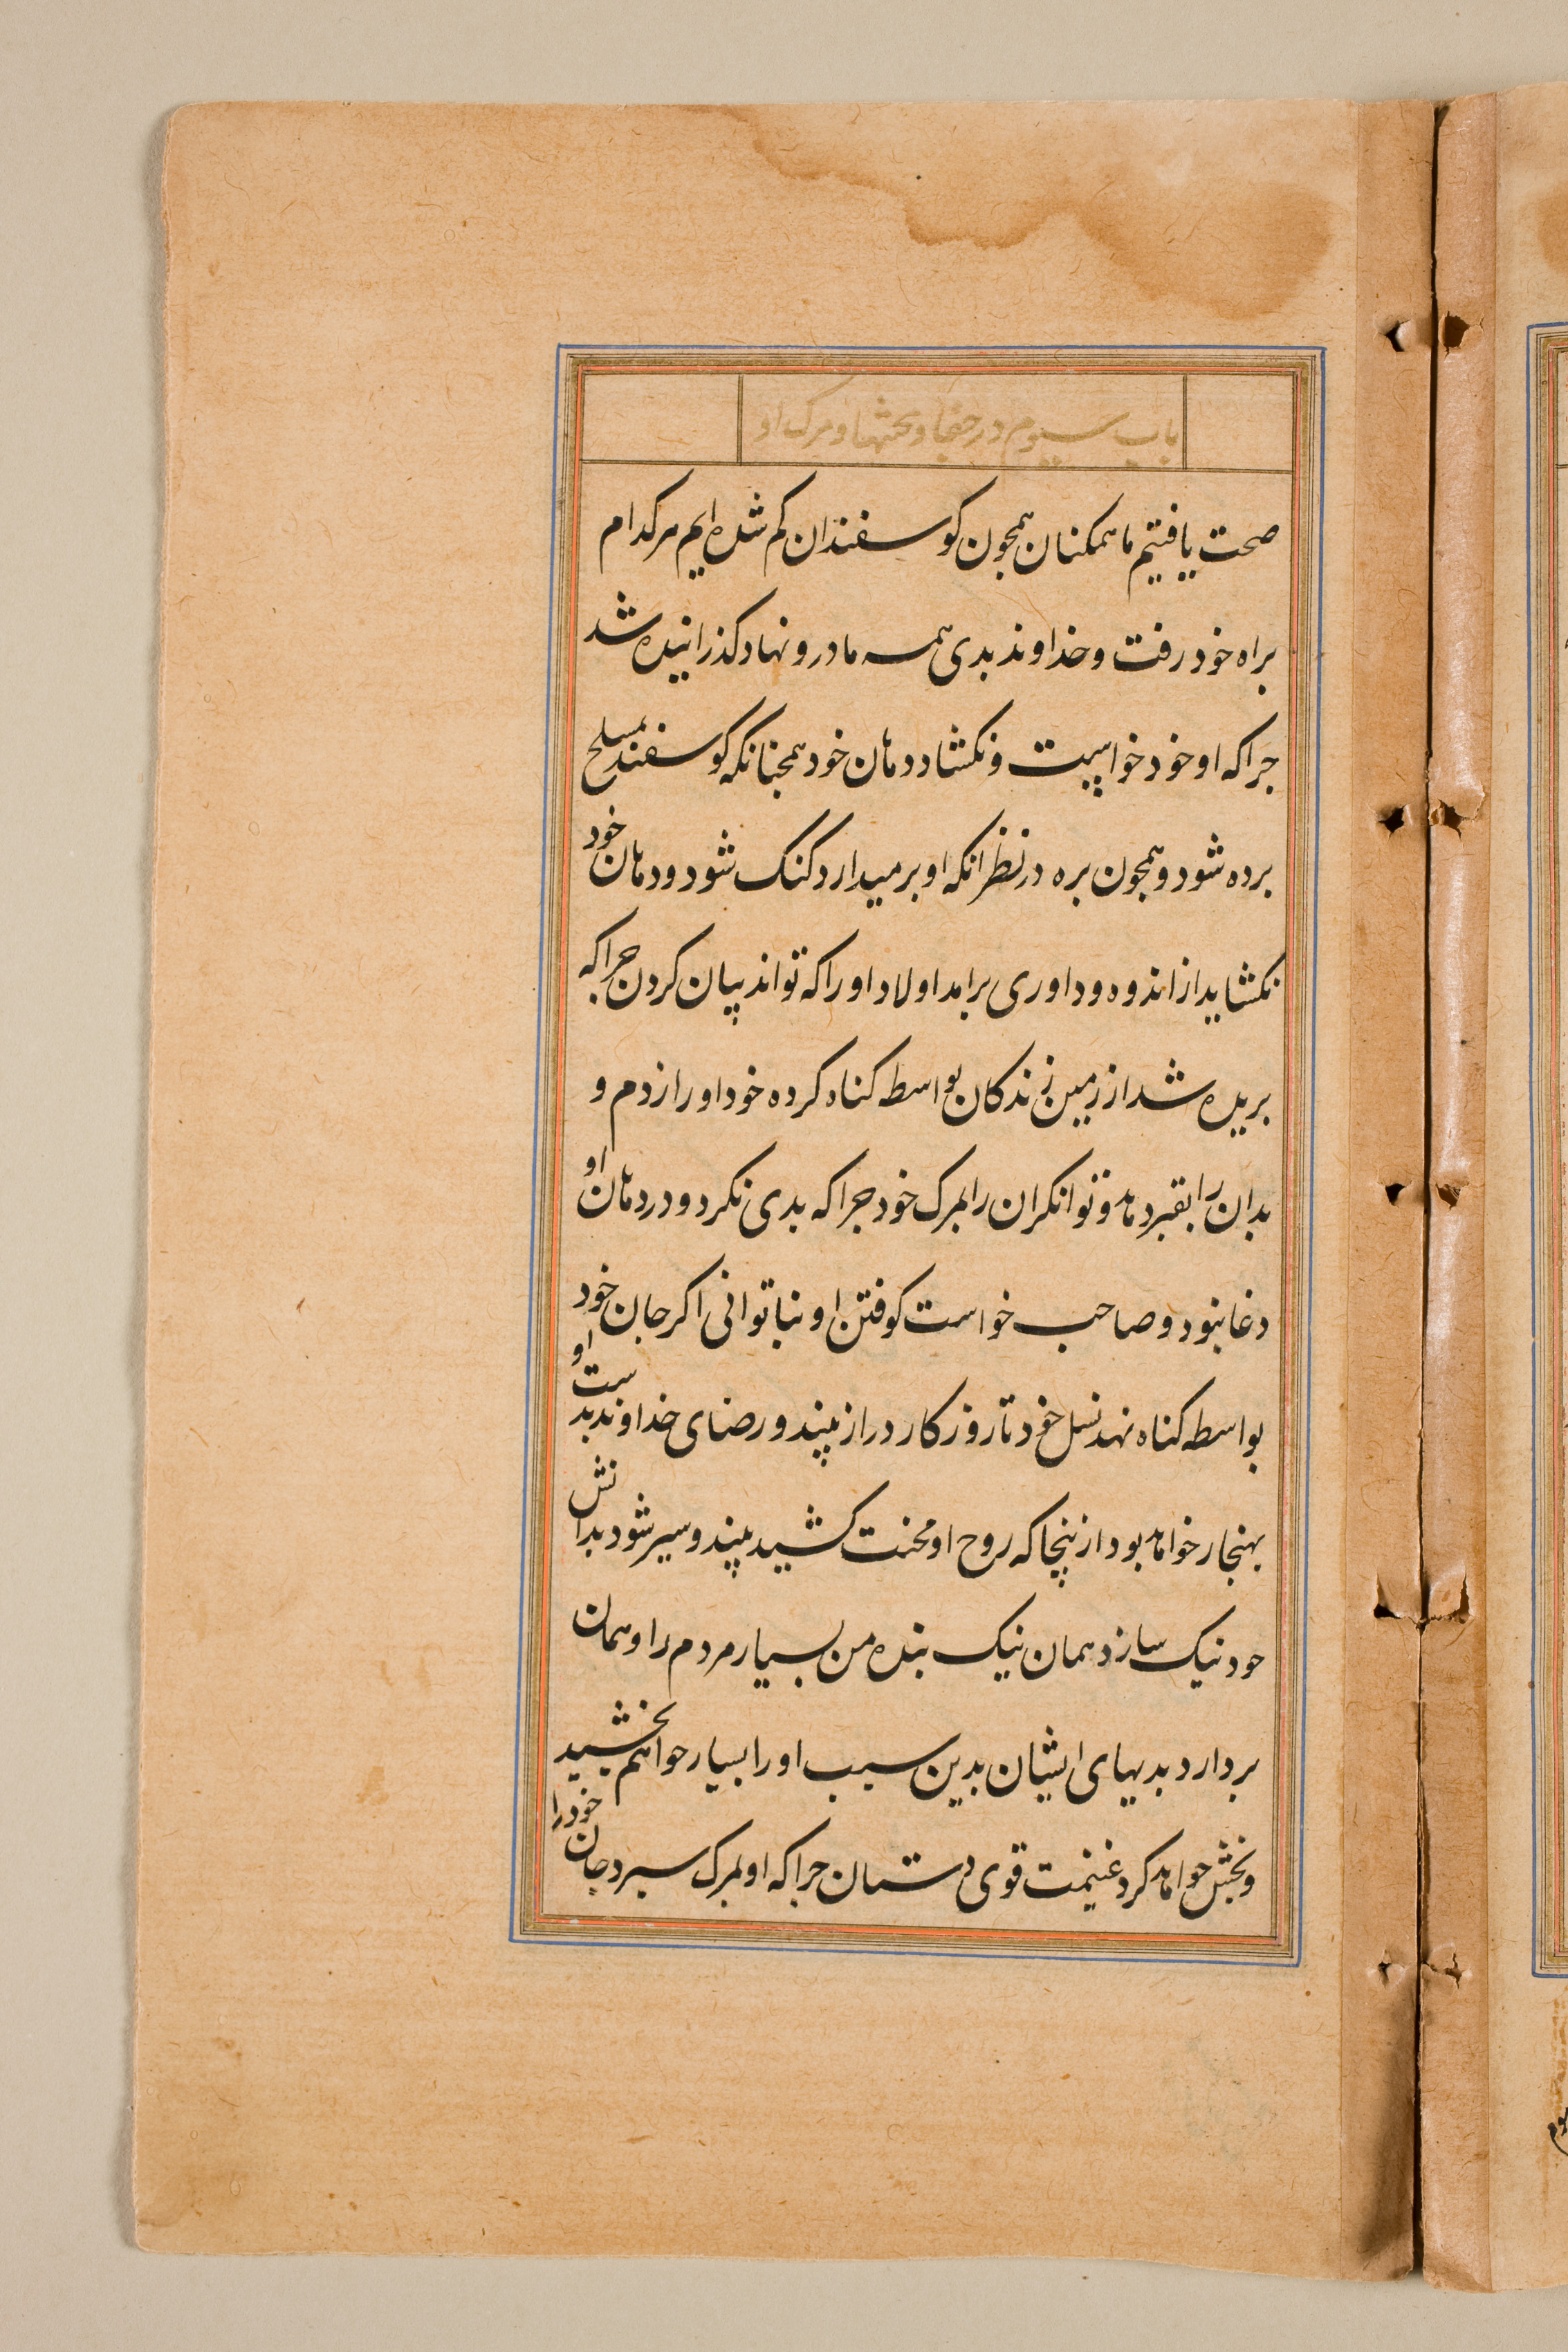 باب سیوم در جفا و محنتها و مرک او
صحت یافتیم ما همکنان همجون کوسفندان کم شده ایم هر کدام
براه خود رفت و خداوند بدی همه ما در و نهاد کذرانیده شد
جرا که او خود خواست و نکشاد دهان خود همجنانکه کوسفند بمسلخ
برده شود و همجون بره در نظر انکه او بر میدارد کنک شود و دهان خود
نکشاید از اندوه و داوری برامد اولاد او را که تواند بیان کردن جرا که
بریده شد از زمین زندکان بواسطه کناه کرده خود او را زدم و
بدان را بقبر دهد و توانکران را بمرک خود جرا که بدی نکرد و در دهان او
دغا نبود و صاحب خواست کوفتن او بناتوانی اکر جان خود
بواسطه کناه نهد نسل خود تا روزکار دراز بیند و رضای خداوند بدست او
بهنجار خواهد بود ازینجا که روح او محنت کشید بیند و سیر شود بدانش
خود نیک سازد همان نیک بنده من بسیار مردم را و همان
بردارد بدیهای ایشان بدین سبب او را بسیار خواهم بخشید
و بخش خواهد کرد غنیمت قوی دستان جرا که او بمرک سبرد جان خود را